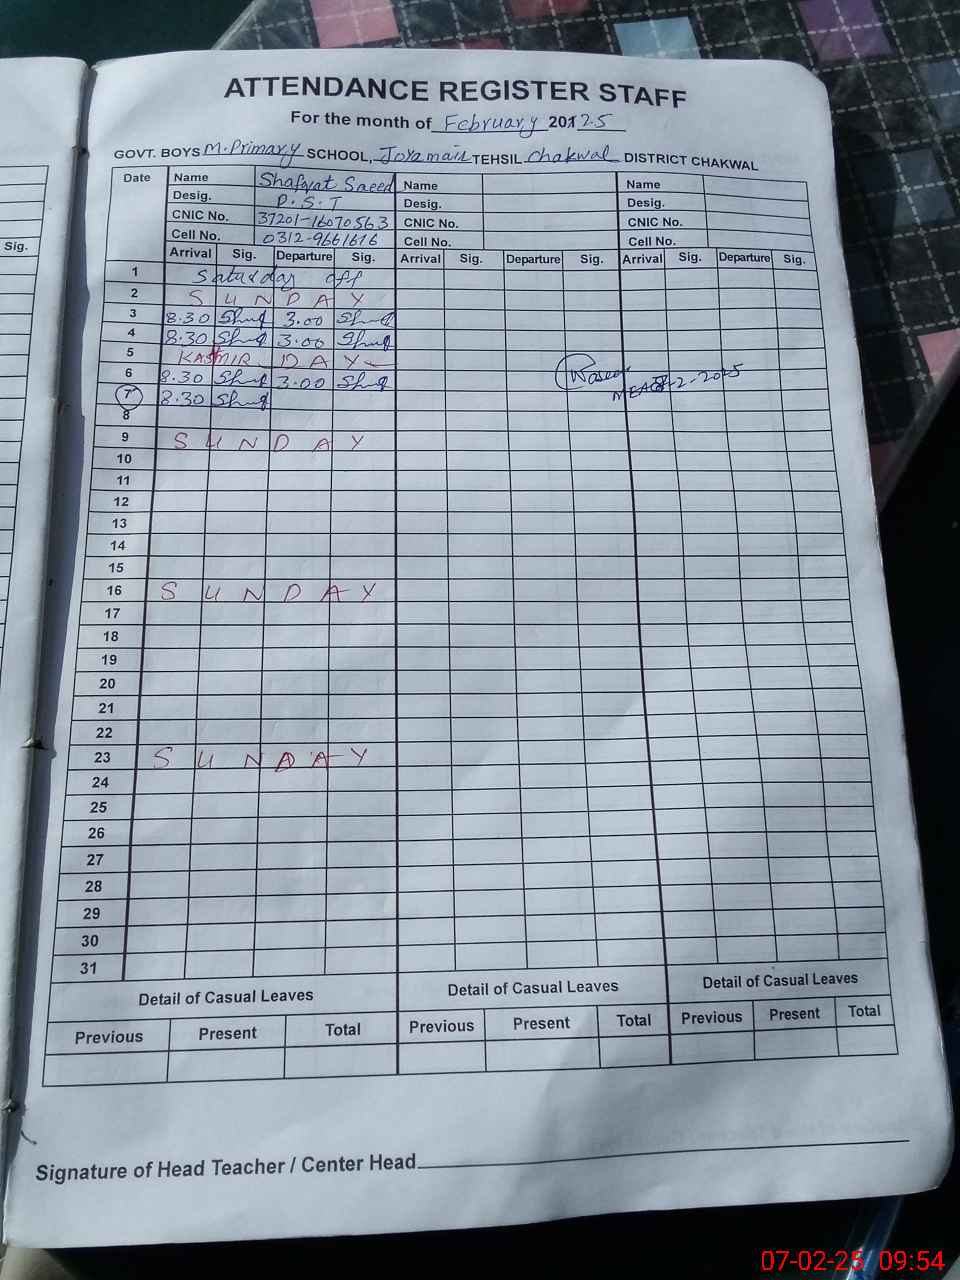 ATTENDANCE REGISTER STAFF
For the month of February 2012.5
GOVT. BOYS M.Primary SCHOOL, TEHSIL Chakwal DISTRICT CHAKWAL
Sig.
Date Name Shafqat Saeed Name Name
Desig. P.S.T Desig. Desig.
CNIC No. 37201-16070563 CNIC No. CNIC No.
Cell No. 0312-9661616 Cell No. Cell No.
Arrival Sig. Departure Sig. Arrival Sig. Departure Sig. Arrival Sig. Departure Sig.
1 Saturday off
2 SUNDAY
3 8.30 3.00
4 8.30 3.00
5 KASHMIR DAY
6 8.30 3.00
7 8.30
8
9 SUNDAY
10
11
12
13
14
15
16 SUNDAY
17
18
19
20
21
22
23 SUNDAY
24
25
26
27
28
29
30
31
Detail of Casual Leaves Detail of Casual Leaves Detail of Casual Leaves
Previous Present Total Previous Present Total Previous Present Total
Signature of Head Teacher / Center Head
07-02-25 09:54